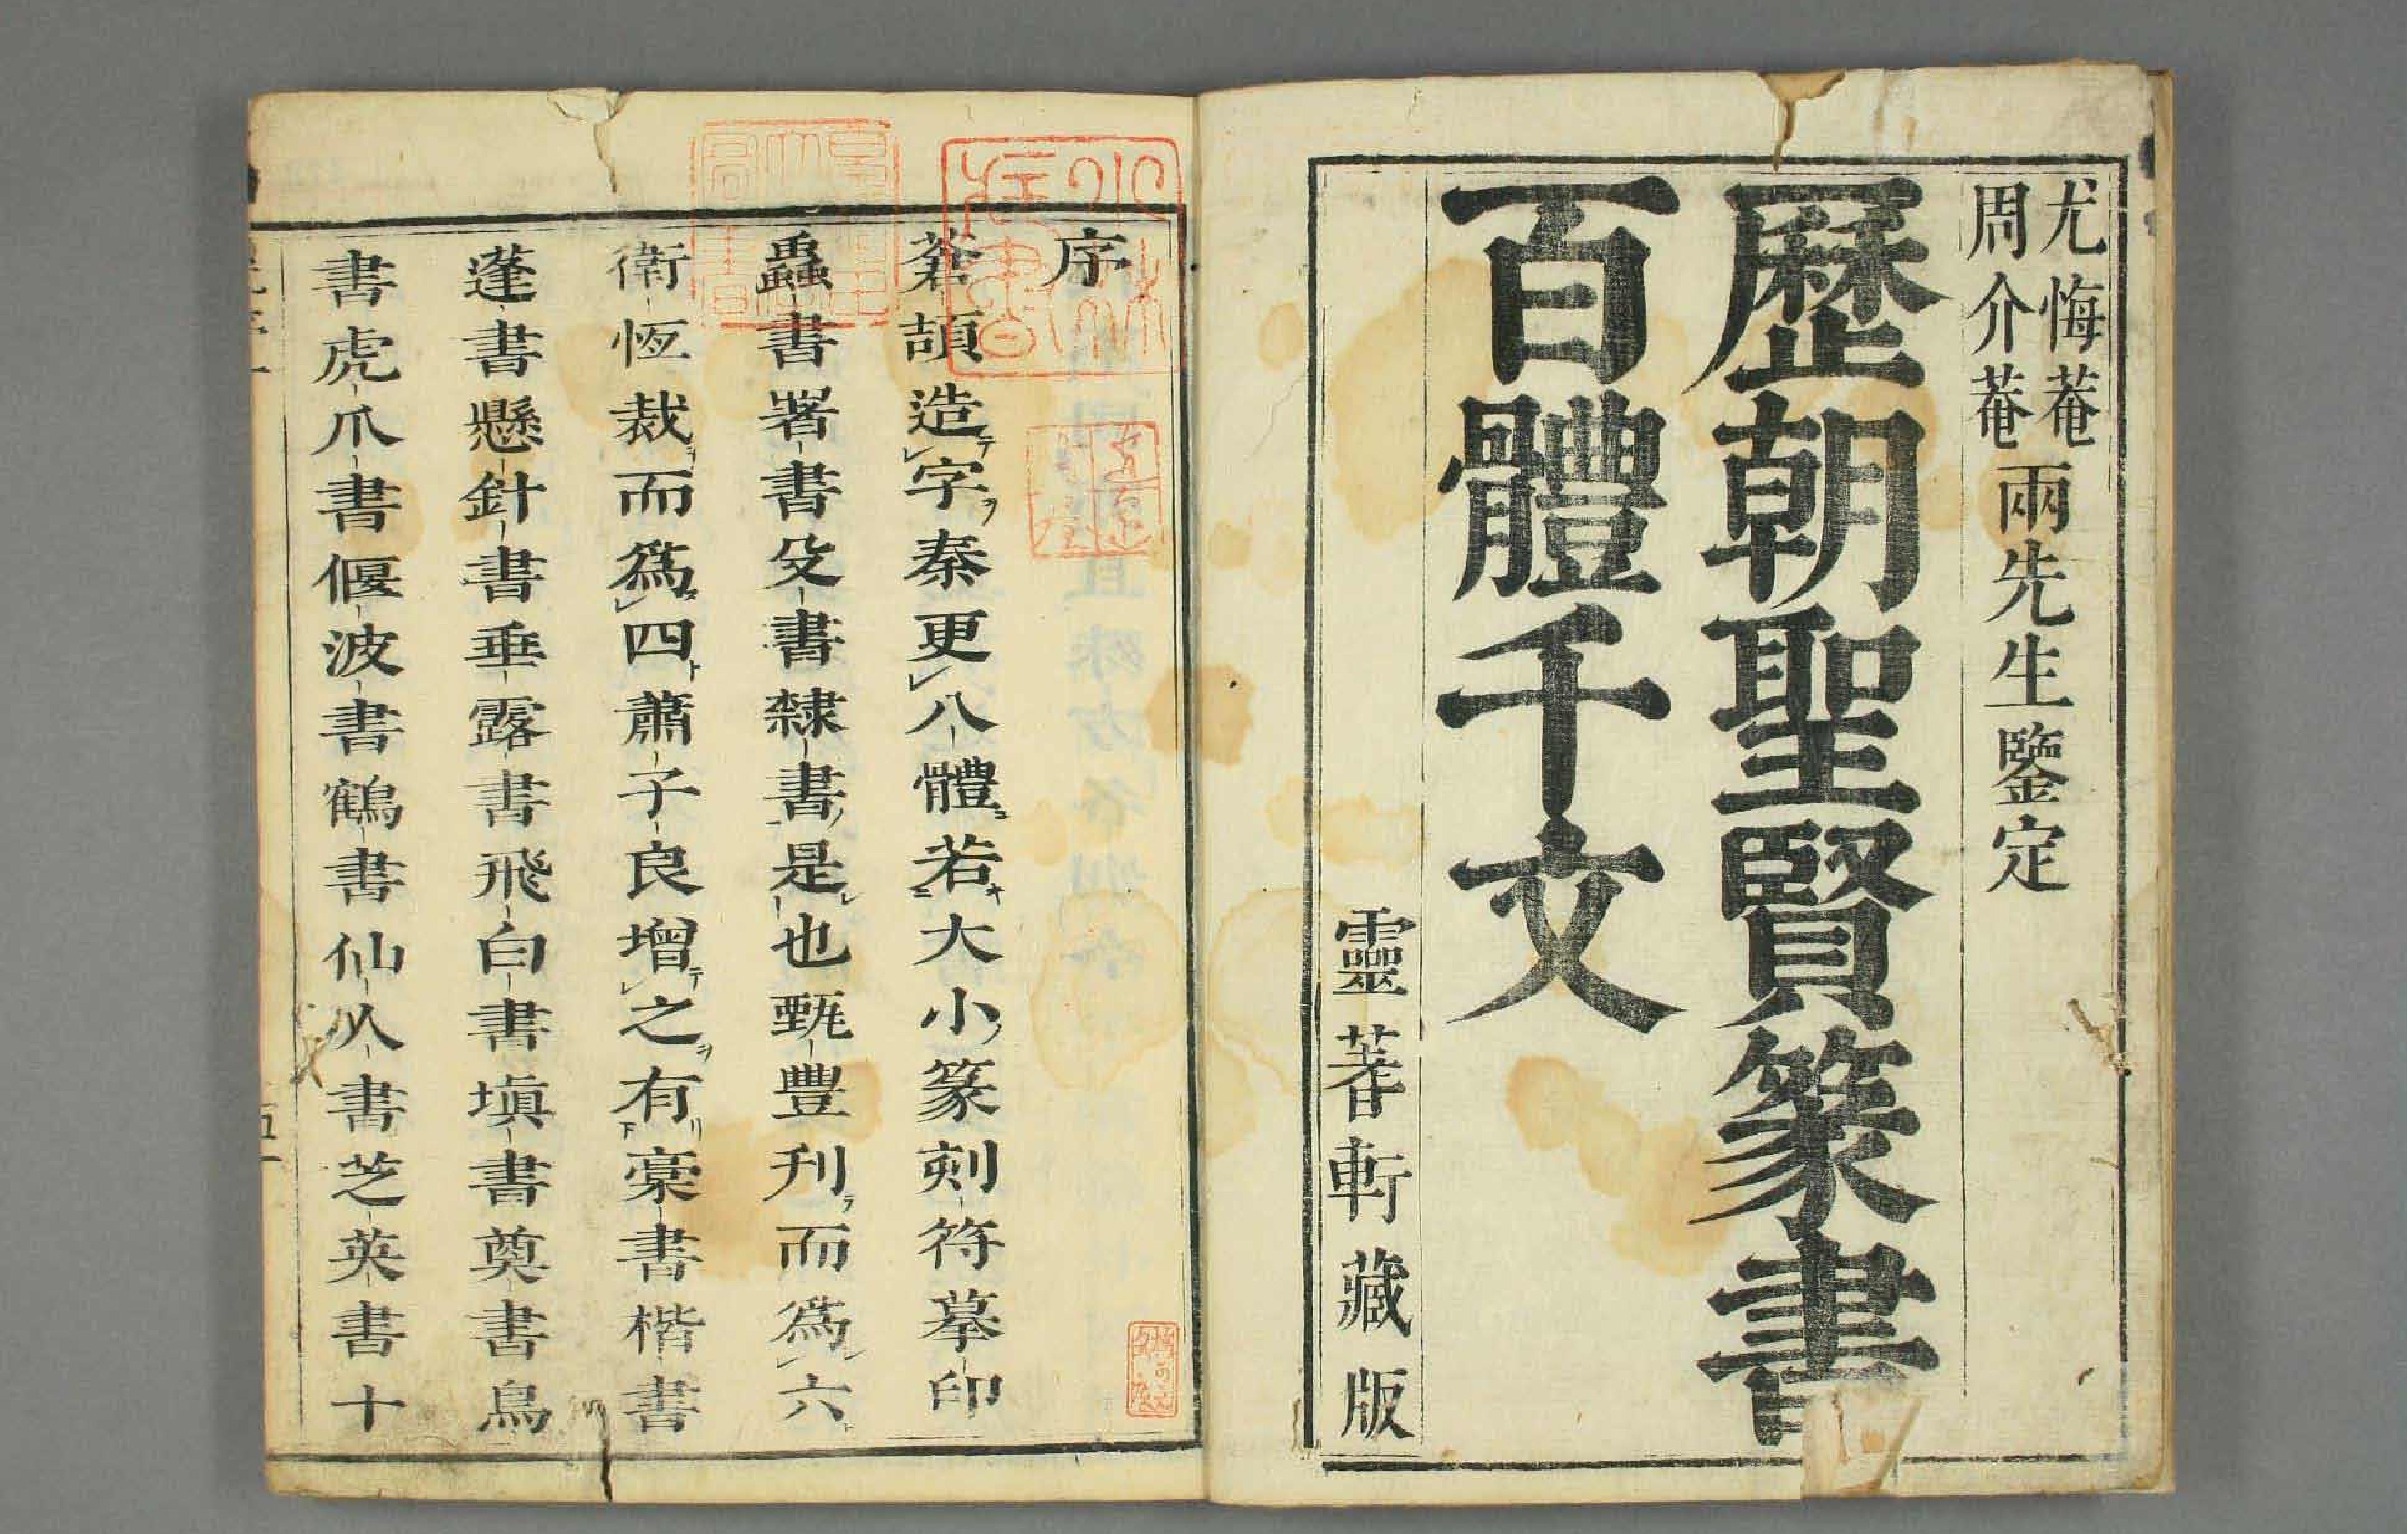 尤悔菴
周介菴
兩先生鑒定
歷朝聖賢篆書
百體千文
靈蓍軒藏版
序
蒼頡造テ字ヲ秦更八體若大小篆刻符摹印
蟲書署書殳書隸書是也甄豐刋テ而為六
衛恆裁而為四蕭子良增テ之ヲ有リ稾書楷書
蓬書懸針書垂露書飛白書塡書奠書鳥
書虎爪書偃波書鶴書仙人書芝英書十